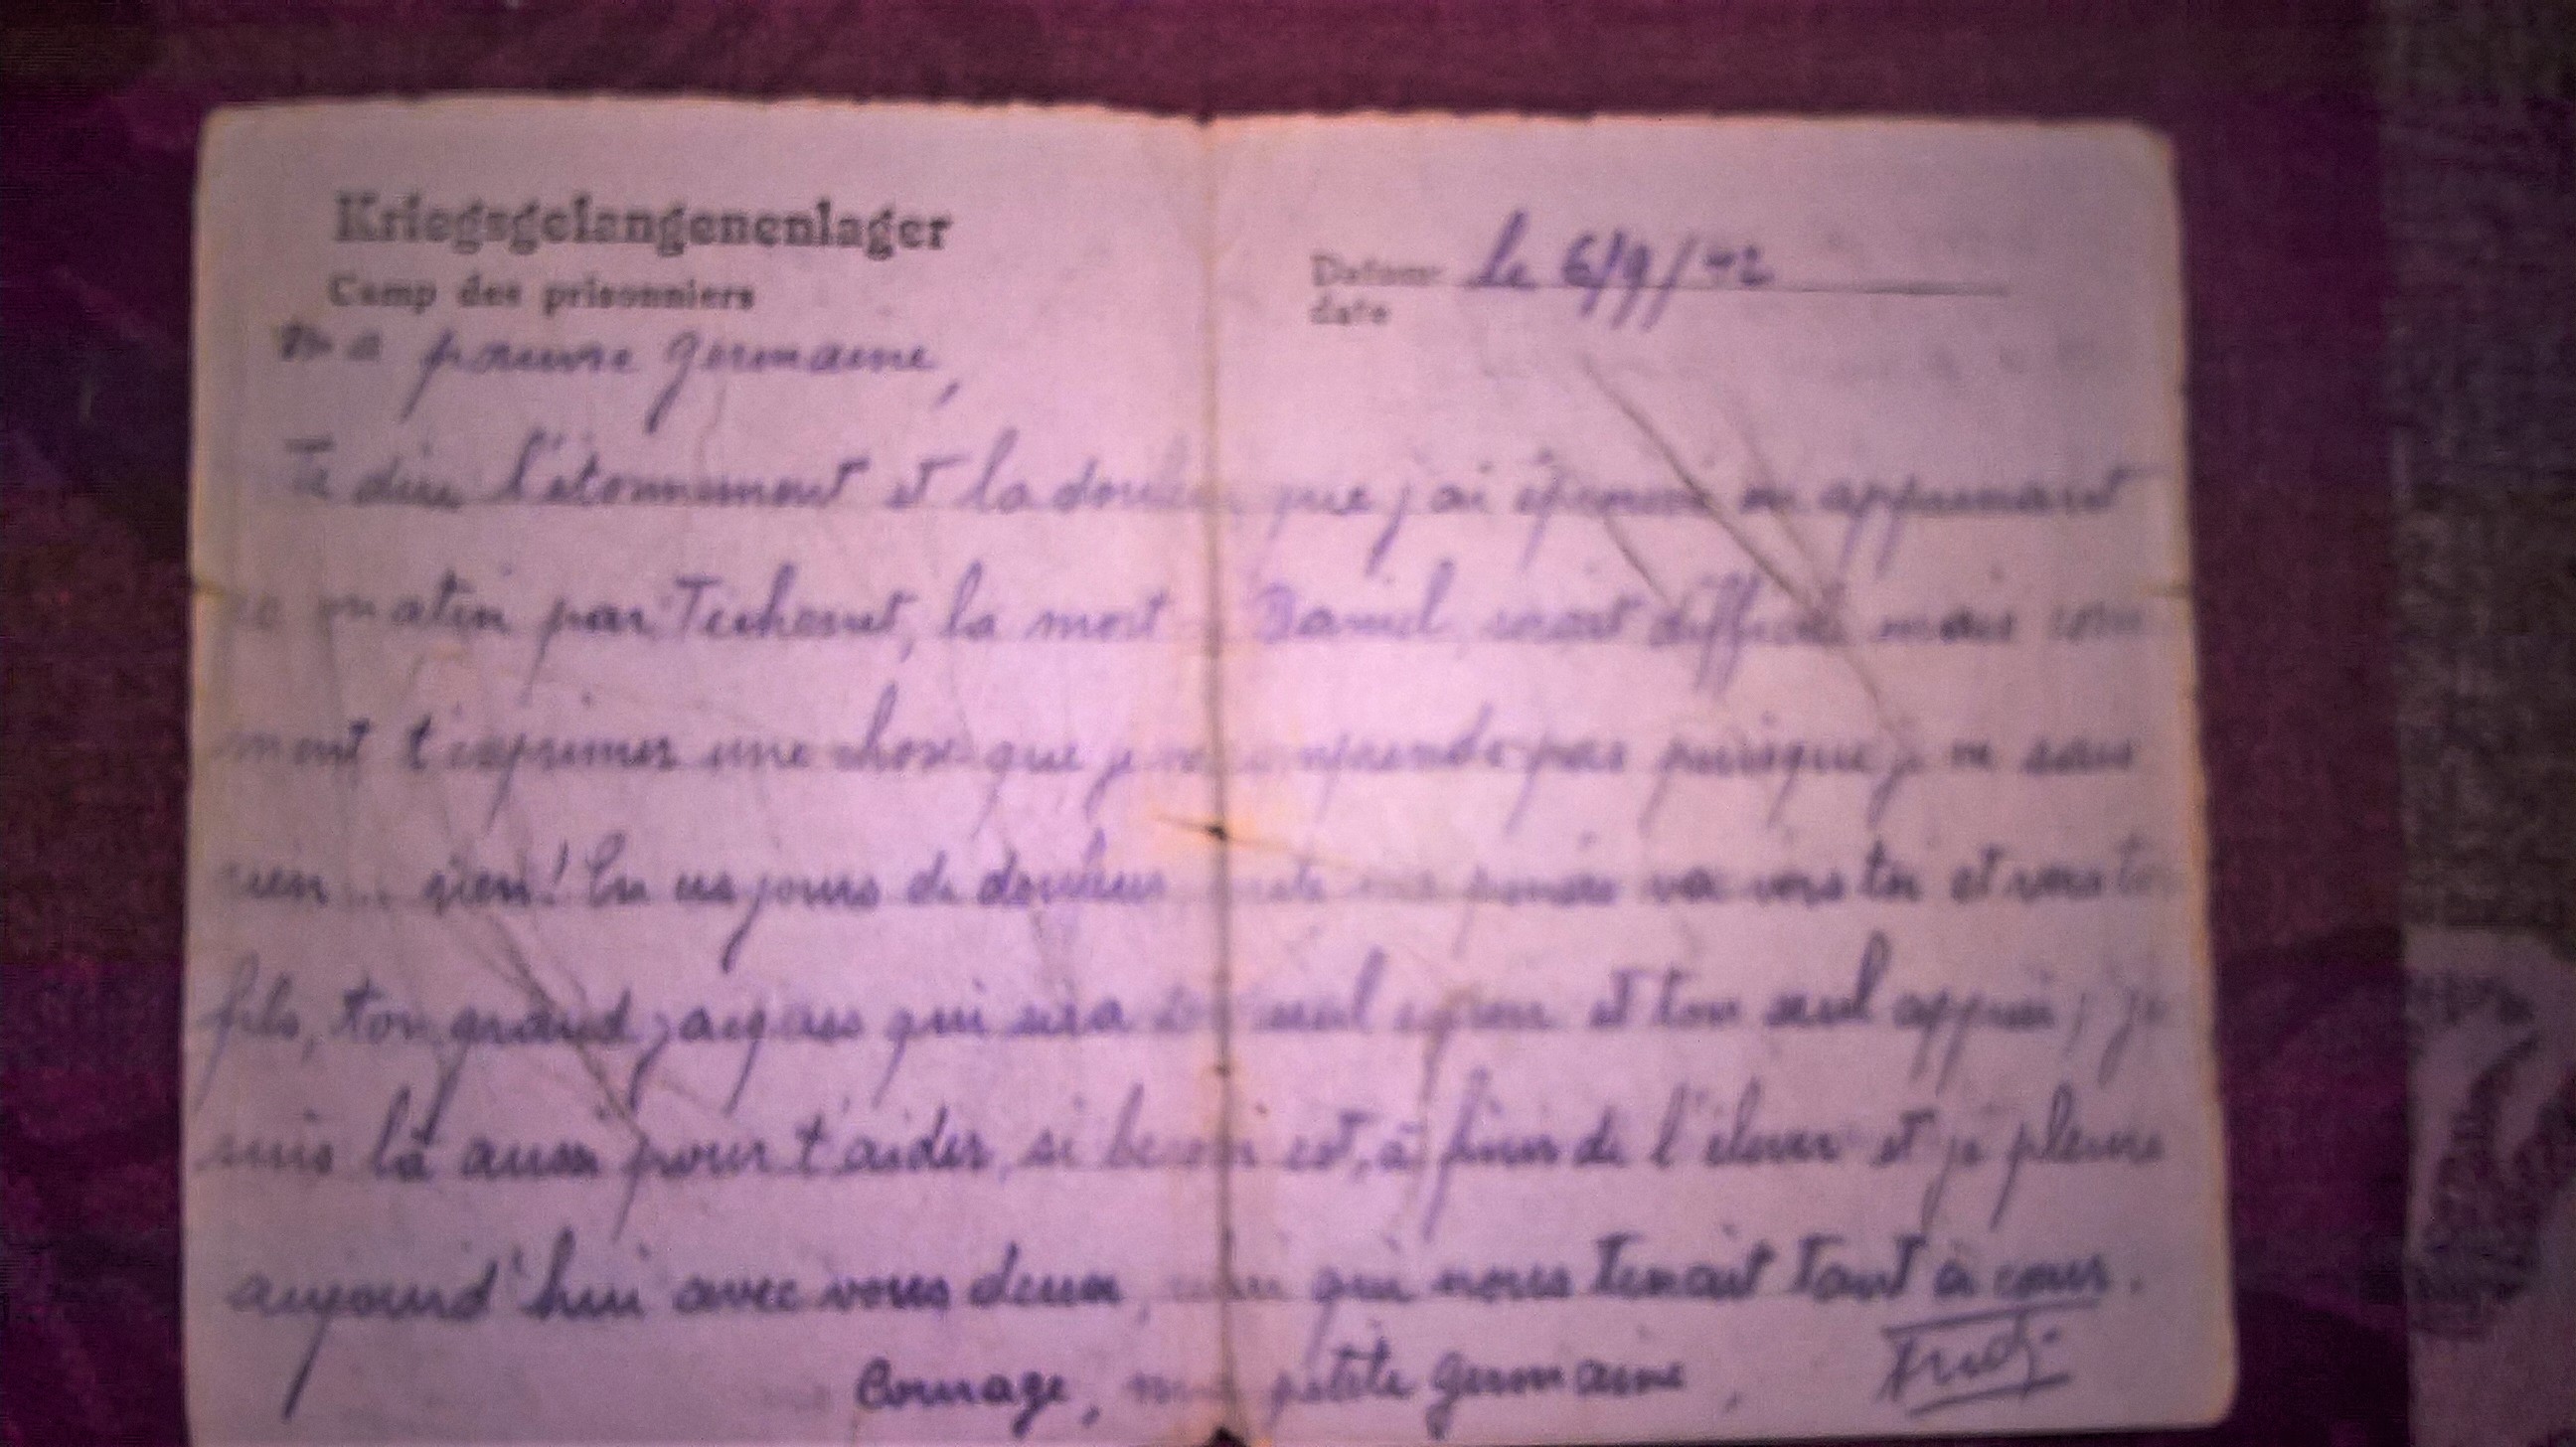 Kriegsgefangenenlager
Camp des prisonniers
Datum: le 6/9/42
date
ma pauvre Germaine,
Te dire l'étonnement et la douleur que j'ai éprouvé en apprenant
ce matin par, la mort Daniel, serait difficile mais com
ment t'exprimer une chose que je ne comprends pas puisque je ne sais
rien... rien! En ces jours de douleur toute ma pensée va vers toi et vers ton
fils, ton grand qui sera ton seul espoir et ton seul appui; je
suis là aussi pour t'aider, si besoin est, à finir de l'élever et je pleure
aujourd'hui avec vous deux, celui qui nous tenait tant à cœur.
Courage, ma petite Germaine,